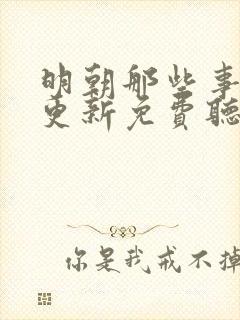 明朝那些事
更新免費聽
你是我戒不掉